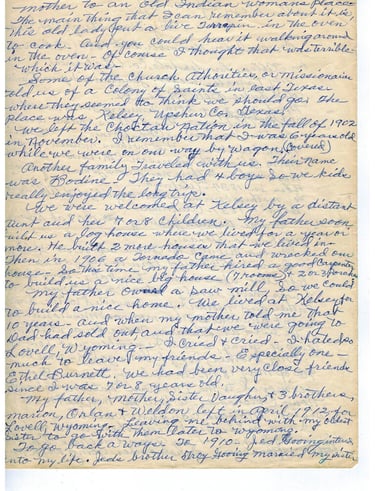 mother to an old Indian womans place.
The main thing that I can remember about it is,
this old lady put a live Terrapin in the oven
to cook. And you could hear it walking around
in the oven. Of course I thought that was terrible -
which it was.
Some of the Church Athorities, or missionaries
told us of a Colony of Saints in east Texas
where they seemed to think we should go. The
place was, Kelsey, Upshur Co. Texas.
We left the Choctaw Nation in the fall of 1902
in November. I remember that I was 6 years old
while we were on our way by Wagon, (Covered)
Another family Traveled with us. Their name
was Bodine. They had 4 boys so we kids
really enjoyed the long trip.
We were welcomed at Kelsey by a distant
Aunt and her 7 or 8 children. My father soon
built us a log house where we lived for a year or
more. He built 2 more houses that we lived in.
Then in 1906 a Tornado came and wracked our
house. So this time my father hired a good Carpenter
to build us a nice big house (7 rooms & 2 or 3 porches)
My father owned a saw mill, So we could
to build a nice home. We lived at Kelsey for
10 years. and when my mother told me that
Dad had sold out and that we were going to
Lovell, Wyoming - I Cried & Cried. I hated so
much to leave my friends. Especially one -
Ethel Burnett. We had been very close friends
since I was 7 or 8 years old.
My father, mother, Sister Vaughn, & 3 brothers,
Marion, Orlan & Weldon left in April 1912, for
Lovell, Wyoming. Leaving me behind with my oldest
Sister to go with them later to Wyoming.
To go back a ways To 1910. Jed Gooing enters
into my life. Jeds brother Gooing married my sister